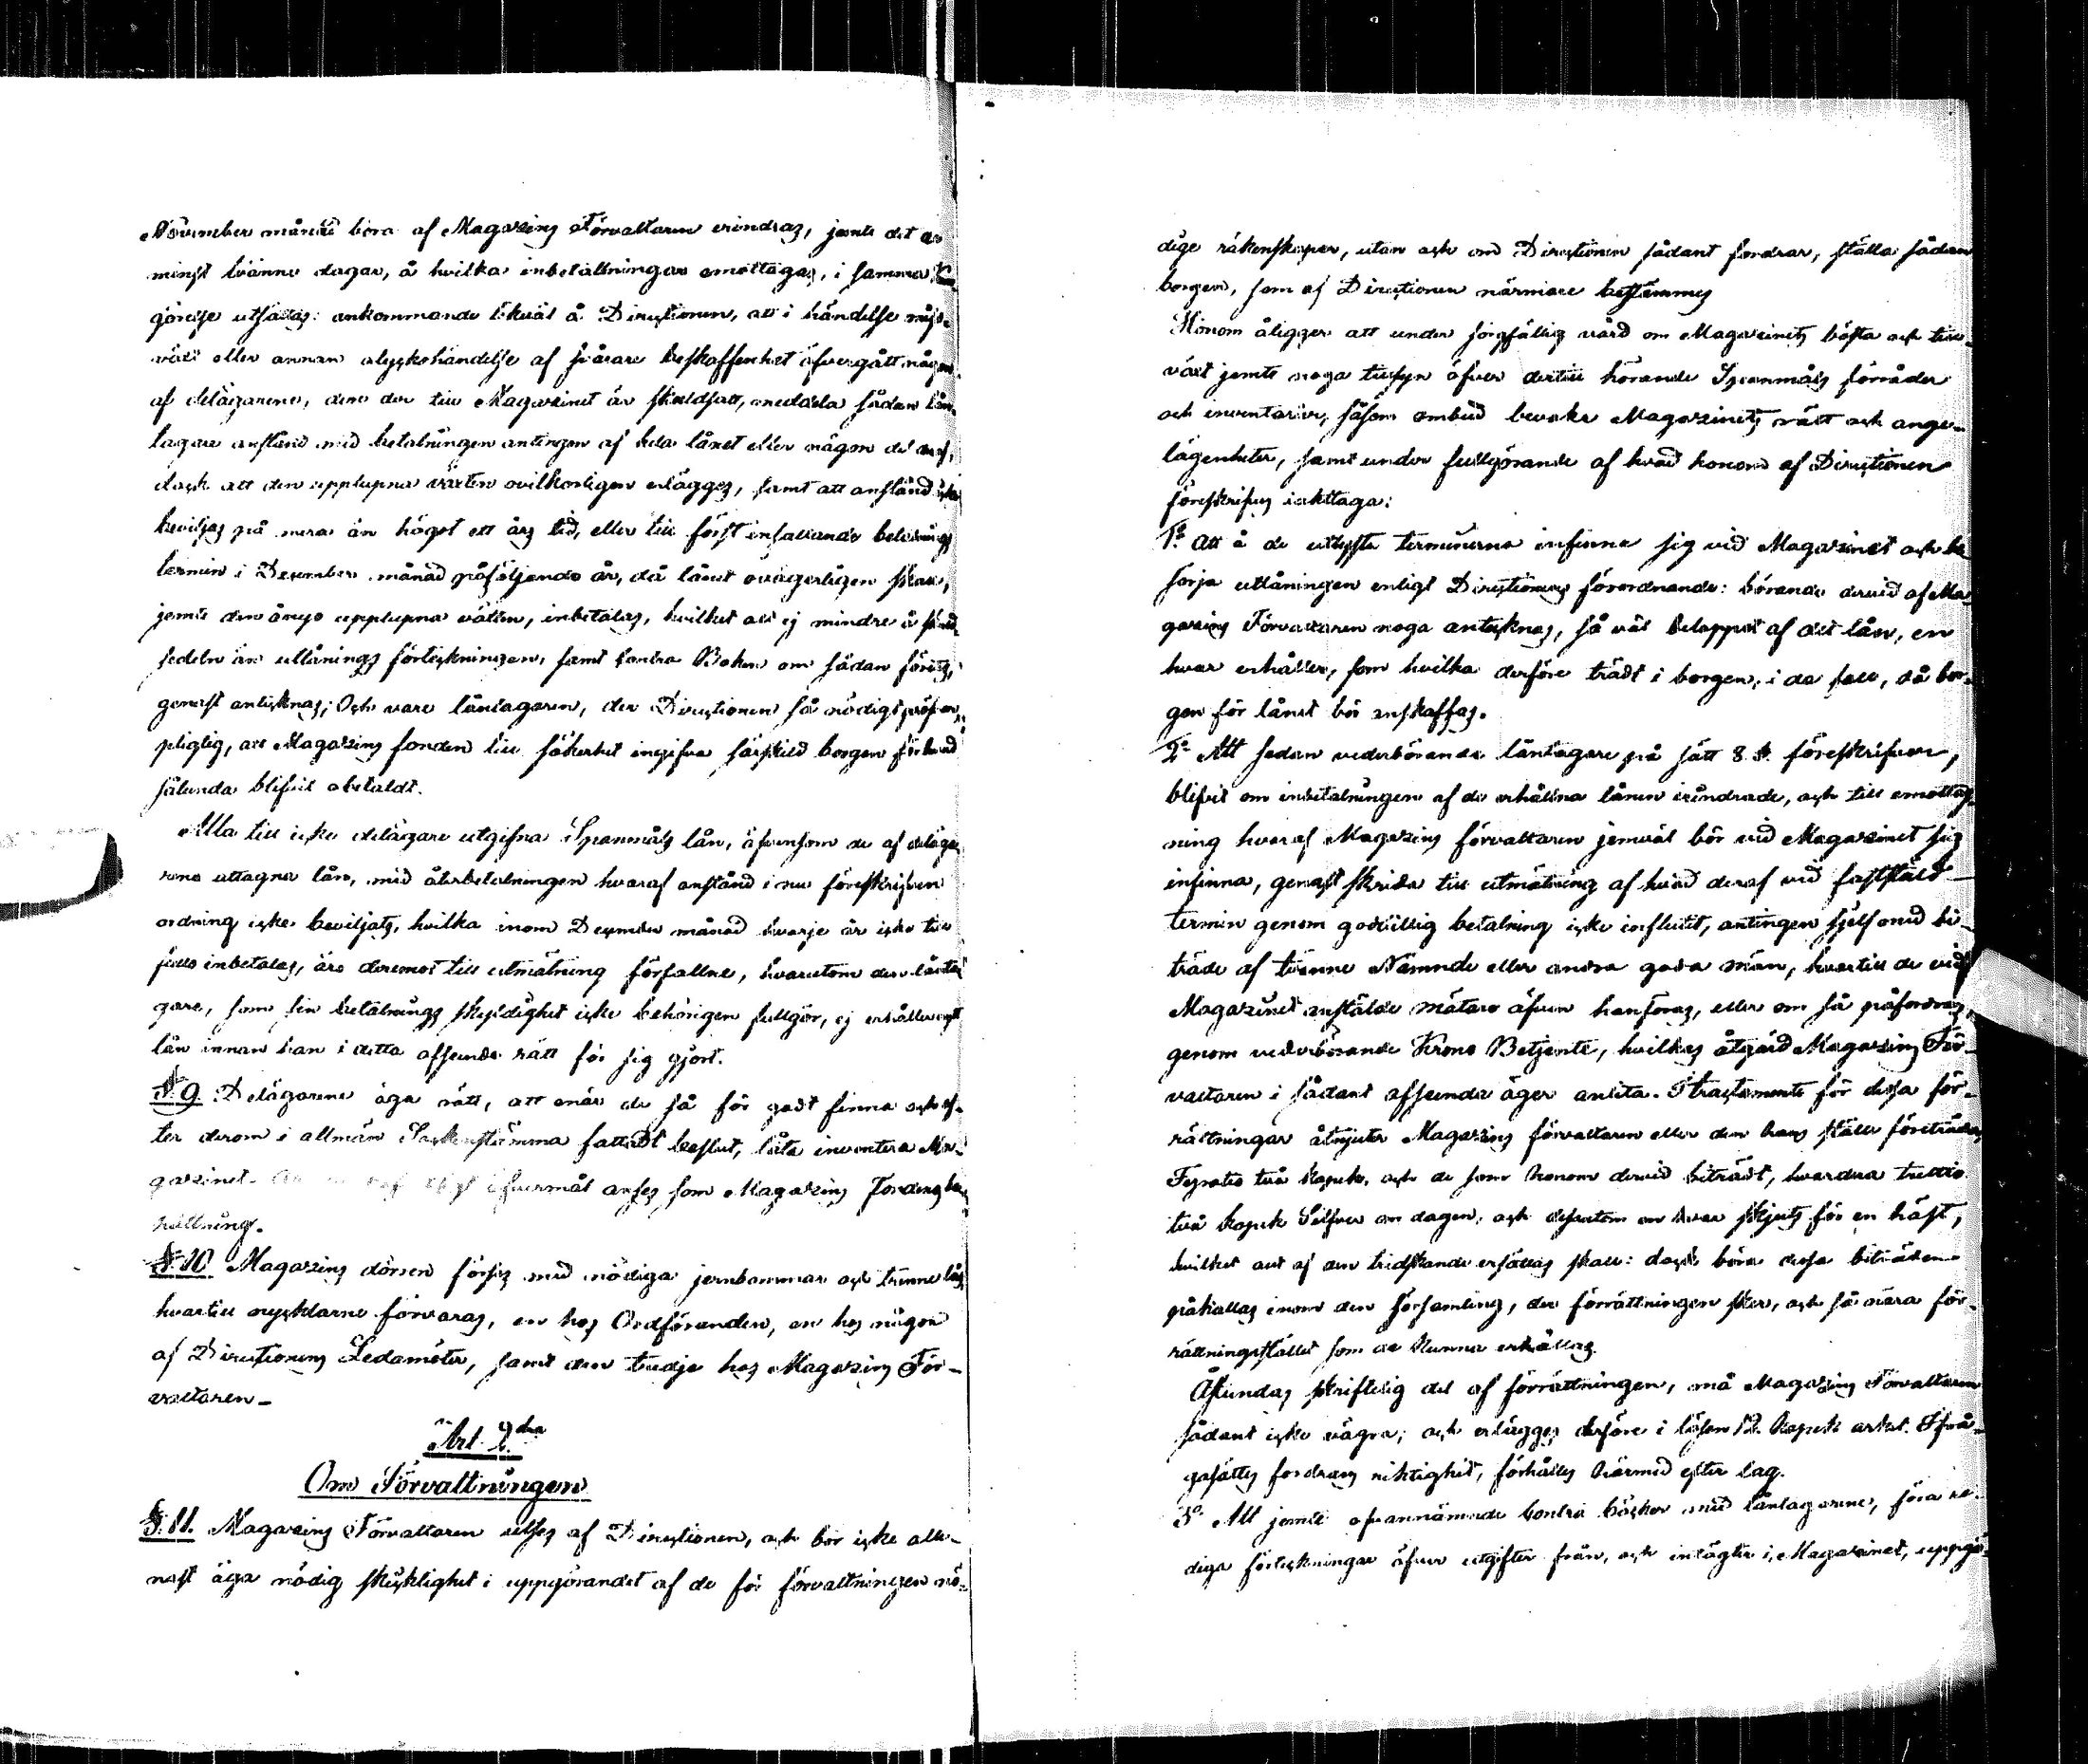 November månad böra af Magazins Förvaltaren erindras, jemte det
minst tvänne dagar, å hvilka inbetallningar emottagas, i samma
görelse utsättas: ankommande likväl å Directionen, att i händelse miss-
växt eller annan olyckshändelse af svårare beskaffenhet öfvergått någon
af delägarene, den der till Magazinet är skuldsatt, meddela sådan lån-
tagare anstånd med betalningen antingen af hela lånet eller någon del deraf,
dock att den upplupna växten ovilkorligen erlägges, samt att anstånd icke
beviljas på mera än högst ett års tid, eller till först infallande betalnings
termin i December månad påföljande år, då lånet ovägerligen skall,
jemte den ånyo upplupna växten, inbetalas, hvilket allt ej mindre å
sedeln än utlånings förteckningen, samt Contra Boken om sådan finnes,
genast antecknas; Och vare låntagaren, der Directionen så nödigt pröfvar,
pligtig, att Magazins fonden till säkerhet ingifva särskild borgen för hvad
sålunda blifvit obetaldt.
Alla till icke delägare utgifna Spanmåls lån, äfvensom de af delägar
rena uttagna lån, med återbetalningen hvaraf anstånd i nu föreskrifven
ordning icke beviljats, hvilka inom December månad hvarje år icke till
fullo inbetalas, äro deremot till utmätning förfallne, hvarutom den lånta
gare, som sin betalnings skyldighet icke behörigen fullgör, ej erhåller nytt
lån innan han i detta afseende rätt för sig gjort.
§. 9. Delägarene äga rätt, att enär de så för godt finna och ef-
ter derom i allmän Sockenstämma fattadt beslut, låta inventera Ma-
gazinet. öfvermål anses som Magazins Fondens be
hållning.
§. 10 Magazins dörren förses med nödiga jernbommar och trenne lås
hvartill nycklarne förvaras, en hos Ordföranden, en hos någon
af Directionens Ledamöter, samt den tredje hos Magazins För-
valtaren -
Art. 2dra
Om Förvaltningen
§. 11. Magazins Förvaltaren utses af Directionen, och bör icke alle-
nast äga nödig skicklighet i uppgörandet af de för förvaltningen nö-
dige räkenskaper, utan ock om Directionen sådant fordrar, ställa sådan
borgen, som af Directionen närmare bestämmes
Honom åligger att under sorgfällig vård om Magazinets bästa och till-
växt jemte noga tillsyn öfver dertill hörande Spanmåls förråder
och inventarier, såsom ombud bevaka Magazinets rätt och ange-
lägenheter, samt under fullgörande af hvad honom af Directionen
föreskrifves iakttaga:
1o Att å de utlyste terminerna infinna sig vid Magazinet och be
sörja utlåningen enligt Directionens förordnande: börande dervid af Ma
gazins Förvaltaren noga antecknas, så väl beloppet af det lån, en
hvar erhåller, som hvilka derföre trädt i borgen, i de fall, då bor-
gen för lånet bör anskaffas.
2o Att sedan vederbörande låntagare på sätt 8 §. föreskrifver,
blifvit om inbetalningen af de erhållna lånen erindrade, och till emottag
ning hvaraf Magazins förvaltaren jemväl bör vid Magazinet sig
infinna, genast skrida till utmätning af hvad deraf vid fastställd
termin genom godvillig betalning icke influtit, antingen sjelf med bi-
träde af tvenne Nämnde eller andra goda män, hvartill de vid
Magazinet anstälde mätare äfven hänföras, eller om så påfordras,
genom vederbörande Krono Betjente, hvilkas åtgärd Magazins För-
valtaren i sådant afseende äger anlita. I tractamente för dessa för-
rättningar åtnjuter Magazins förvaltaren eller den hans ställe företräder
Fyratio två kopek, och de som honom dervid biträdt, hvardera trettio
två kopek Silfver om dagen, och dessutom en hvar skjuts för en häst,
hvilket allt af den tredskande ersättas skall: dock böra dessa biträden
påkallas inom den församling, der förrättningen sker, och så nära för-
rättningsstället som de kunna erhållas.
Åstundas skriftelig del af förrättningen, må Magazins Förvaltaren
sådant icke vägra; och erlägges derföre i lösen 12. Kopek arket. Ifrå-
gasättes fordrans riktighet, förhålles härmed efter lag.
3o Att jemte ofvannämnde contra böcker med låntagarene, föra re-
diga förteckningar öfver utgifter från, och inlägter i Magazinet, uppgö-